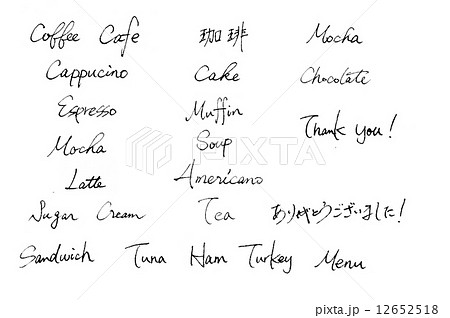 Coffee Cafe 珈琲 Mocha
Cappucino Cake Chocolate
Espresso Muffin
Thank you!
Mocha Soup
Latte Americano
Sugar Cream Tea ありがとうございました!
Sandwich Tuna Ham Turkey Menu
PIXTA
pixta.jp - 12652518